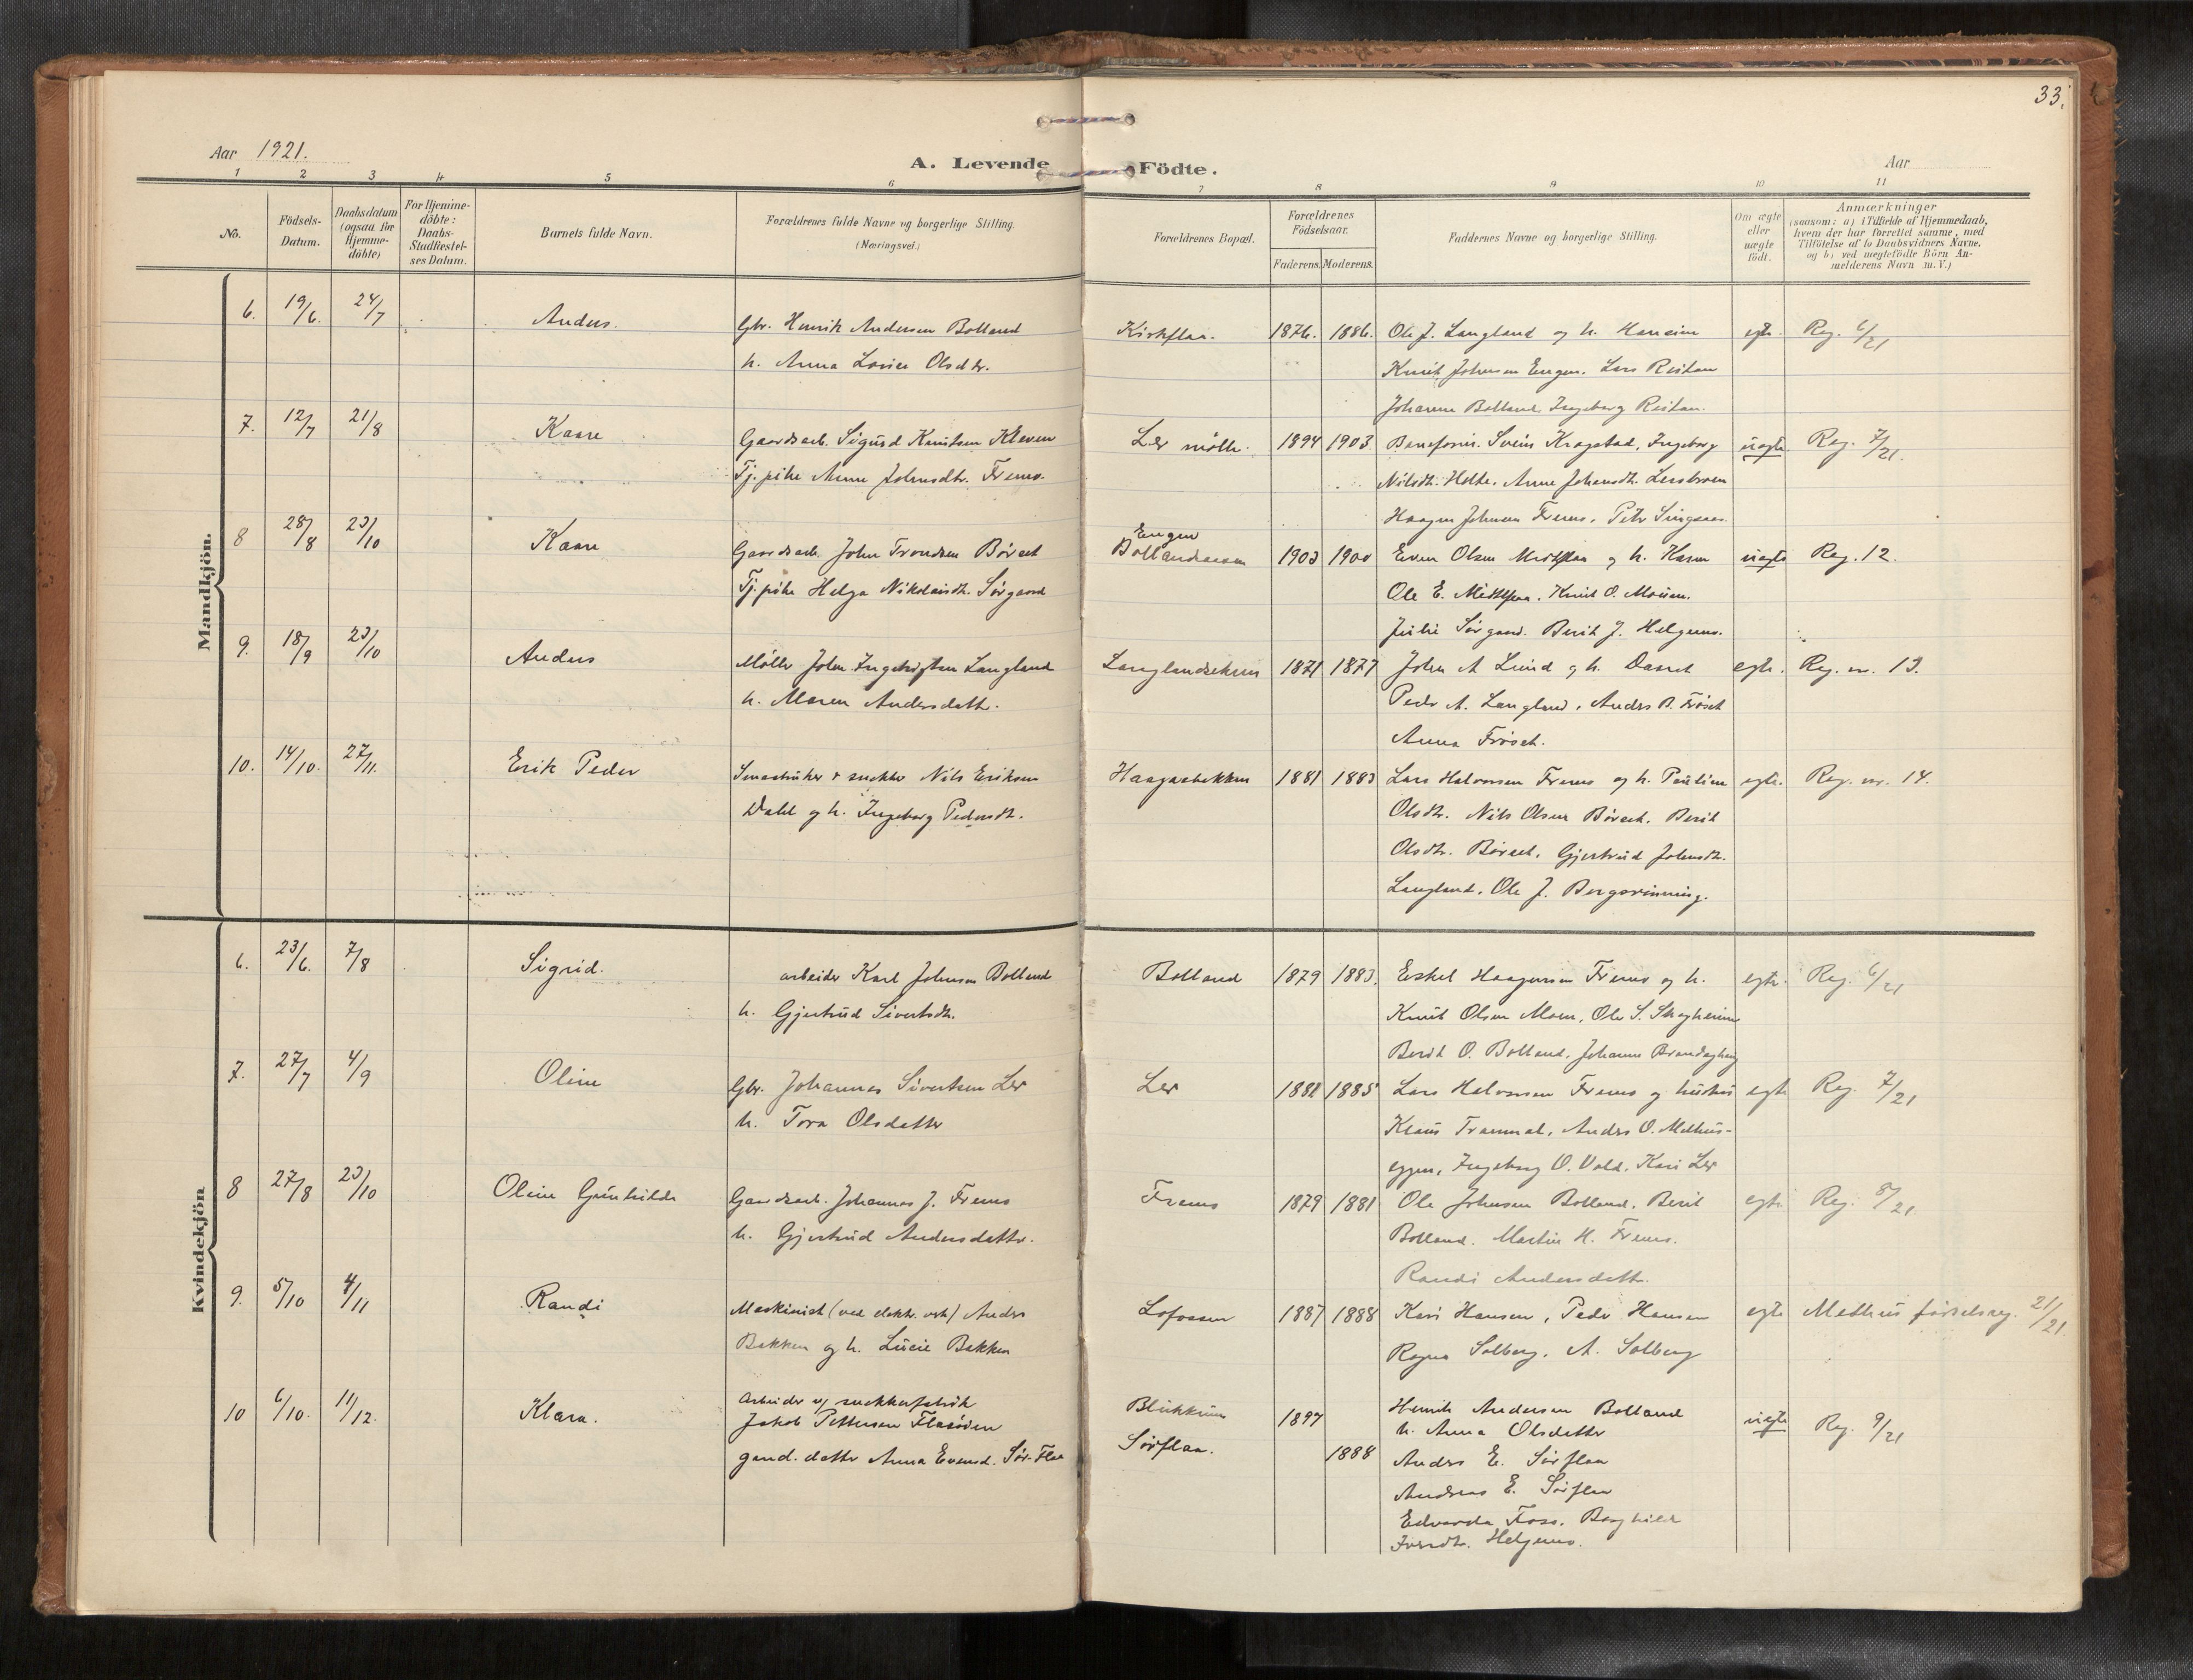 33.
Aar 1921.
A. Levende Födte.
Aar
1 2 3 4 5 6 7 8 9 10 11
No.
Födsels-Datum.
Daabsdatum (ogsaa for Hjemme-döbte)
For Hjemme-döbte: Daabs-Stadfæstel-ses Datum.
Barnets fulde Navn.
Forældrenes fulde Navne og borgerlige Stilling. (Næringsvei.)
Forældrenes Bopæl.
Forældrenes Födselsaar.
Faderens. Moderens.
Faddernes Navne og borgerlige Stilling.
Om ægte eller uægte födt.
Anmærkninger
(saasom: a) i Tilfælde af Hjemmedaab,
hvem der har forrettet samme, med
Tilföielse af to Daabsvidners Navne,
og b) ved uægtefödte Börn An-
melderens Navn m. V.)
Mandkjön.
6. 19/6. 24/7 Anders. Gbr. Henrik Andersen Bolland Kirkflaa. 1876. 1886. Ole J. Langland og h. egte. Reg. 6/21
h. Anna Lovise Olsdtr. Knut Johnsen Engen. Lars Ristan
Johanna Bolland Ingeborg Ristan.
7. 12/7 21/8 Kaare Gaardsarb. Sigurd Knutsen Kleven Ler mölle. 1894 1903. Svein Kragstad, Ingeborg uegte. Reg. 7/21.
Tj. pike Anne Johnsdtr. Frems. Nilsdtr. Holte. Anne Johnsdtr.
Haagen Johnsen Frems. Petr Singsaas.
8 28/8 23/10 Kaare Gaardsarb. John Trondsen Börset Engen 1903 1900 Even Olsen og h. Karen uegte Reg. 12.
Tj. pike Helga Nikolaisdtr. Sörgaard Ole E. Knut O. Moum.
Julie Sörgaard. Berit J. Helgemo.
9. 18/9 23/10 Anders Möller John Ingebrigtsen Langland 1871 1877 John A Lund og h. egte. Reg. nr. 13.
h. Maren Andersdatt. Peder A. Langland, Anders P. Fröset
Anna Fröset.
10. 14/10. 27/11. Erik Peder Smaabruker & snekker Nils Eriksen Haagaabakken 1881 1883 Lars Halvorsen Frems og h. Pauline egte. Reg. nr. 14.
Dahl og h. Ingeborg Pedersdtr. Olsdtr. Nils Olsen Börset. Berit
Olsdtr. Börset, Gjertrud Johnsdtr.
Langland. Ole J. Bergsrönning.
Kvindekjön
6. 23/6. 7/8 Sigrid. arbeider Karl Johnsen Bolland Bolland 1879 1883. Eskel Haagensen Frems og h. egte. Reg. 6/21
h. Gjertrud Sivertsdtr. Knut Olsen Moen, Ole S. Skogheim
Berit O. Bolland. Johanna
7. 27/7 4/9 Oline Gbr. Johannes Sivertsen Ler Ler 1882 1885 Lars Halvorsen Frems og hustru egte Reg. 7/21
h. Tora Olsdatter Klaus Trammel, Anders O. Melhus-
eggen, Ingeborg O. Vold. Kari Ler
8 27/8 23/10 Oline Gunhilda Gaardsarb. Johannes J. Frems Frems 1879 1881 Ole Johnsen Bolland. Berit egte Reg. 8/21.
h. Gjertrud Andersdatter. Bolland. Martin H. Frems.
Randi Andersdatt.
9. 5/10 4/11 Randi Maskinist (ved elektr. verk) Anders Lofossen 1887 1888 Kari Hansen, Peder Hansen egte Melhus födselsreg. 21/21.
Bakken og h. Lucie Bakken Ragna Solberg. A. Solberg
10 6/10. 11/12. Klara. Arbeider v/ snekkerfabrik 1897 Henrik Andersen Bolland uegte Reg. 9/21
Jakob Pettersen h. Anna Olsdatter
gaard. datter Anna Evensd. Sör-Flaa Sörflaa. 1888 Anders E. Sörflaa
Andreas E. Sörflaa
Edvarda Foss. Borghild
Helgemo.